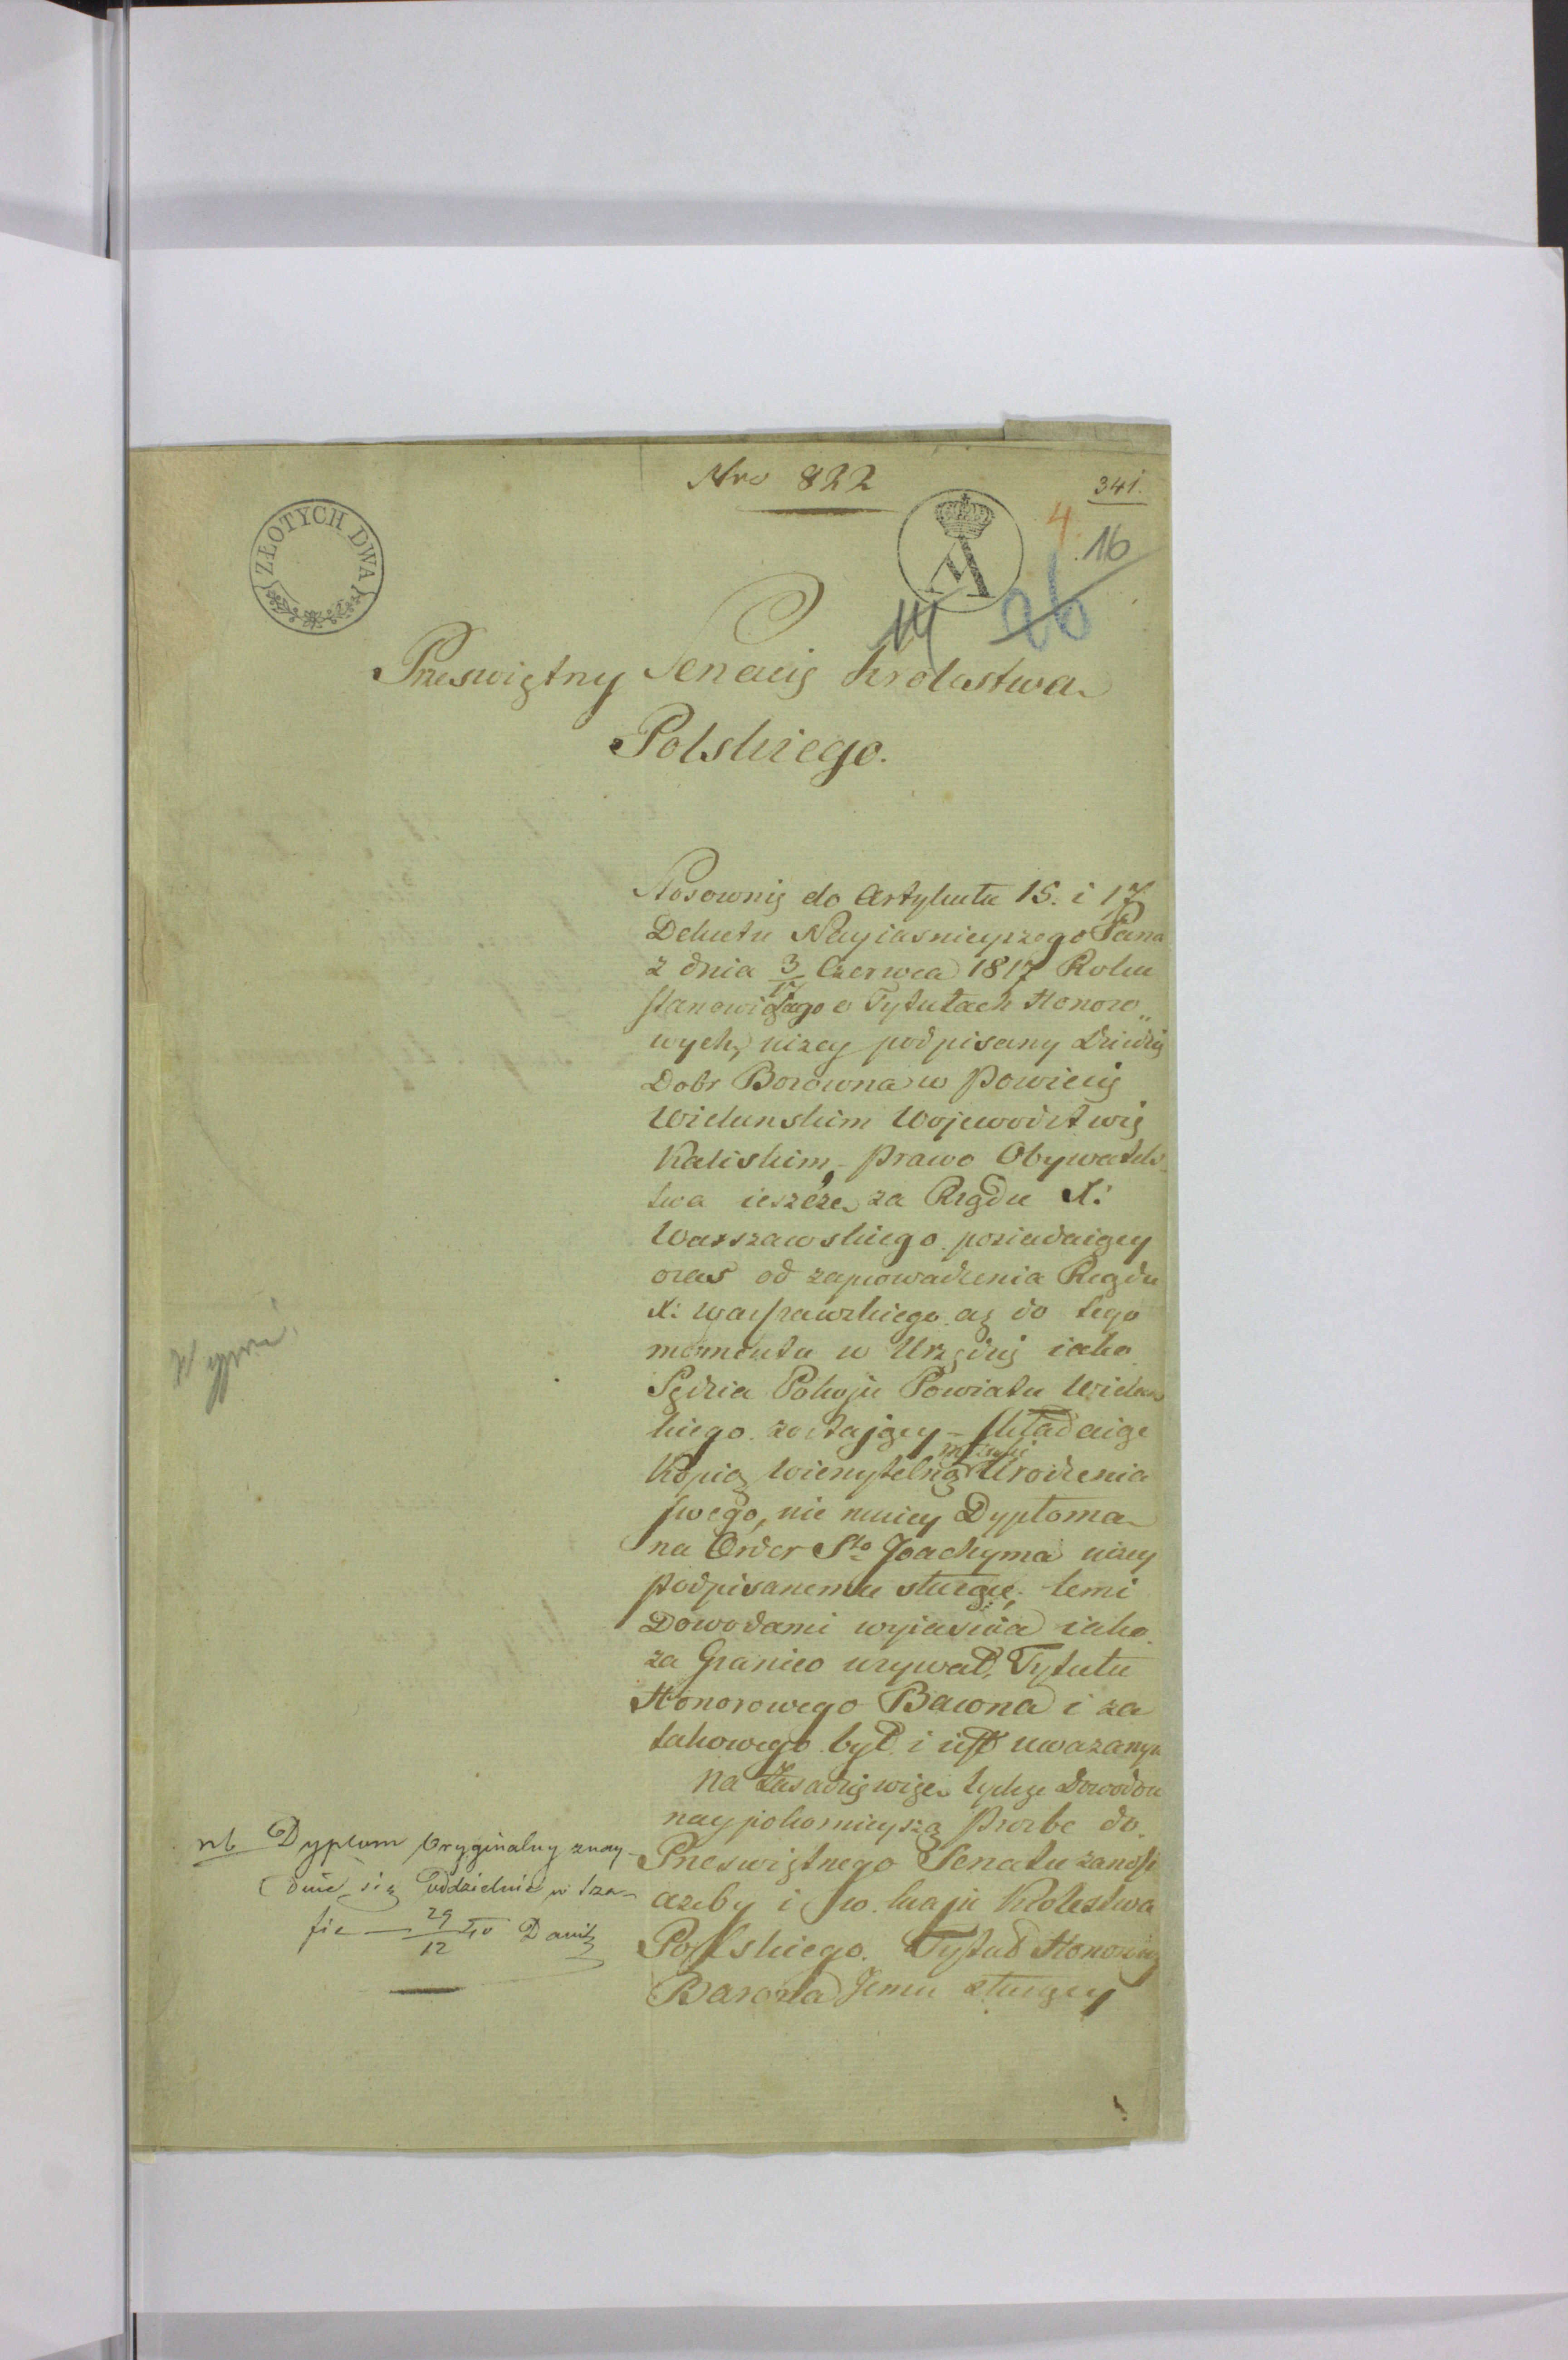 Nro 822
341.
ZŁOTYCH DWA
A
4.
16
26
14
Prześwietny Senacie Krolestwa
Polskiego.
Stosownie do Artykułu 15. i 17
Dekretu Nayiasnieyszego Pana
z dnia 3/17 Czerwca 1817 Roku
stanowiącego o Tytułach Honoro„
wych, niżey podpisany Dziedzic
Dobr Borowna w Powiecie
Wielunskim Wojewodztwie
Kaliskim, - prawo Obywatels-
twa ieszcze za Rządu X:
Warszawskiego posiadaiący
oraz od zaprowadzenia Rządu
X: Warszawskiego aż do tego
momentu w Urzędzie iako
Sędzia Pokoju Powiatu Wieluns
kiego zostający - składaiąc
Kopią wierzytelną metryki Urodzenia
swego, nie mniey Dyploma
na Order Sto Joachyma niżey
podpisanemu służące, temi
Dowodami wyiasnia iako
za Granico używał, Tytułu
Honorowego Barona i za
takowego był i iest uważanym
Na Zasadzie więc tychże Dowodow
naypokornieyszą Prozbe do
Prześwietnego Senatu zanosi
ażeby i w kraju Krolestwa
Polskiego. Tytuł Honorowy
Barona Jemu służący
nb Dyplom Oryginalny znay-
duie się oddzielnie w sza-
fie — 29/12